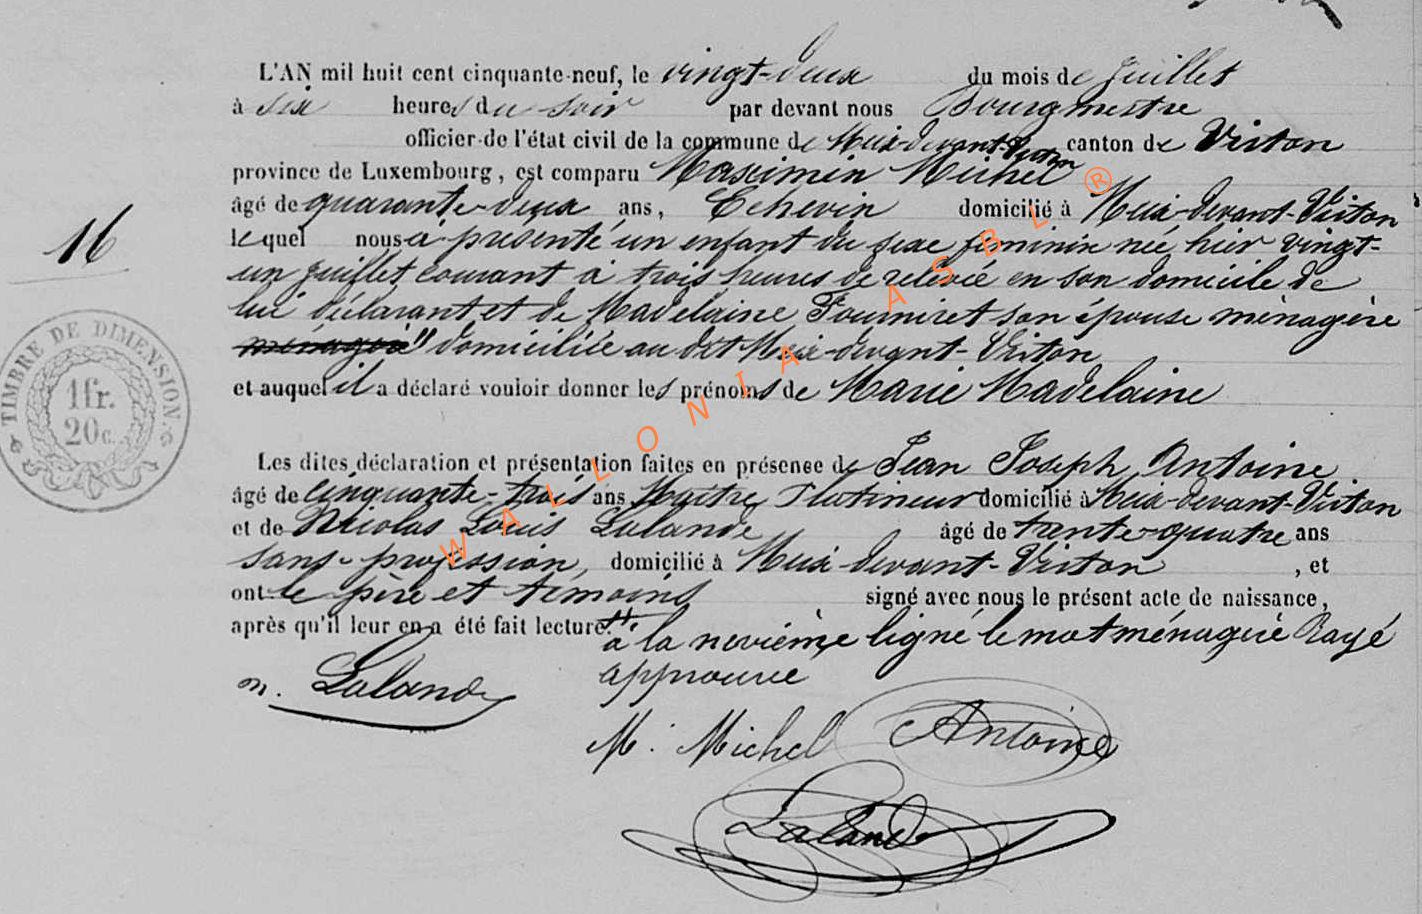 L'AN mil huit cent cinquante-neuf, le vingt-deux du mois de Juillet
à six heures du soir par devant nous Bourgmestre
officier de l'état civil de la commune de Meix-devant-Virton canton de Virton
province de Luxembourg, est comparu Maximin Michel
âgé de quarante-deux ans, Echevin domicilié à Meix-devant-Virton
16
lequel nous a présenté un enfant du sexe féminin née hier vingt-
un Juillet courant à trois heures de relevée en son domicile de
lui déclarant et de Madelaine Fourniret son épouse ménagère
ménagère" domiciliée au dit Meix-devant-Virton
et auquel il a déclaré vouloir donner les prénoms de Marie Madelaine
TIMBRE DE DIMENSION.
1fr.
20c.
Les dites déclaration et présentation faites en présence de Jean Joseph Antoine
âgé de cinquante-trois ans Maître domicilié à Meix-devant-Virton
et de Nicolas Louis Lalande âgé de trente-quatre ans
sans profession, domicilié à Meix-devant-Virton, et
ont le père et témoins signé avec nous le présent acte de naissance,
après qu'il leur en a été fait lecture.
à la nevième ligne le mot ménagère Rayé
approuvé
n. Lalande
M. Michel Antoine
Lalande
WALLONIA ASBL ®